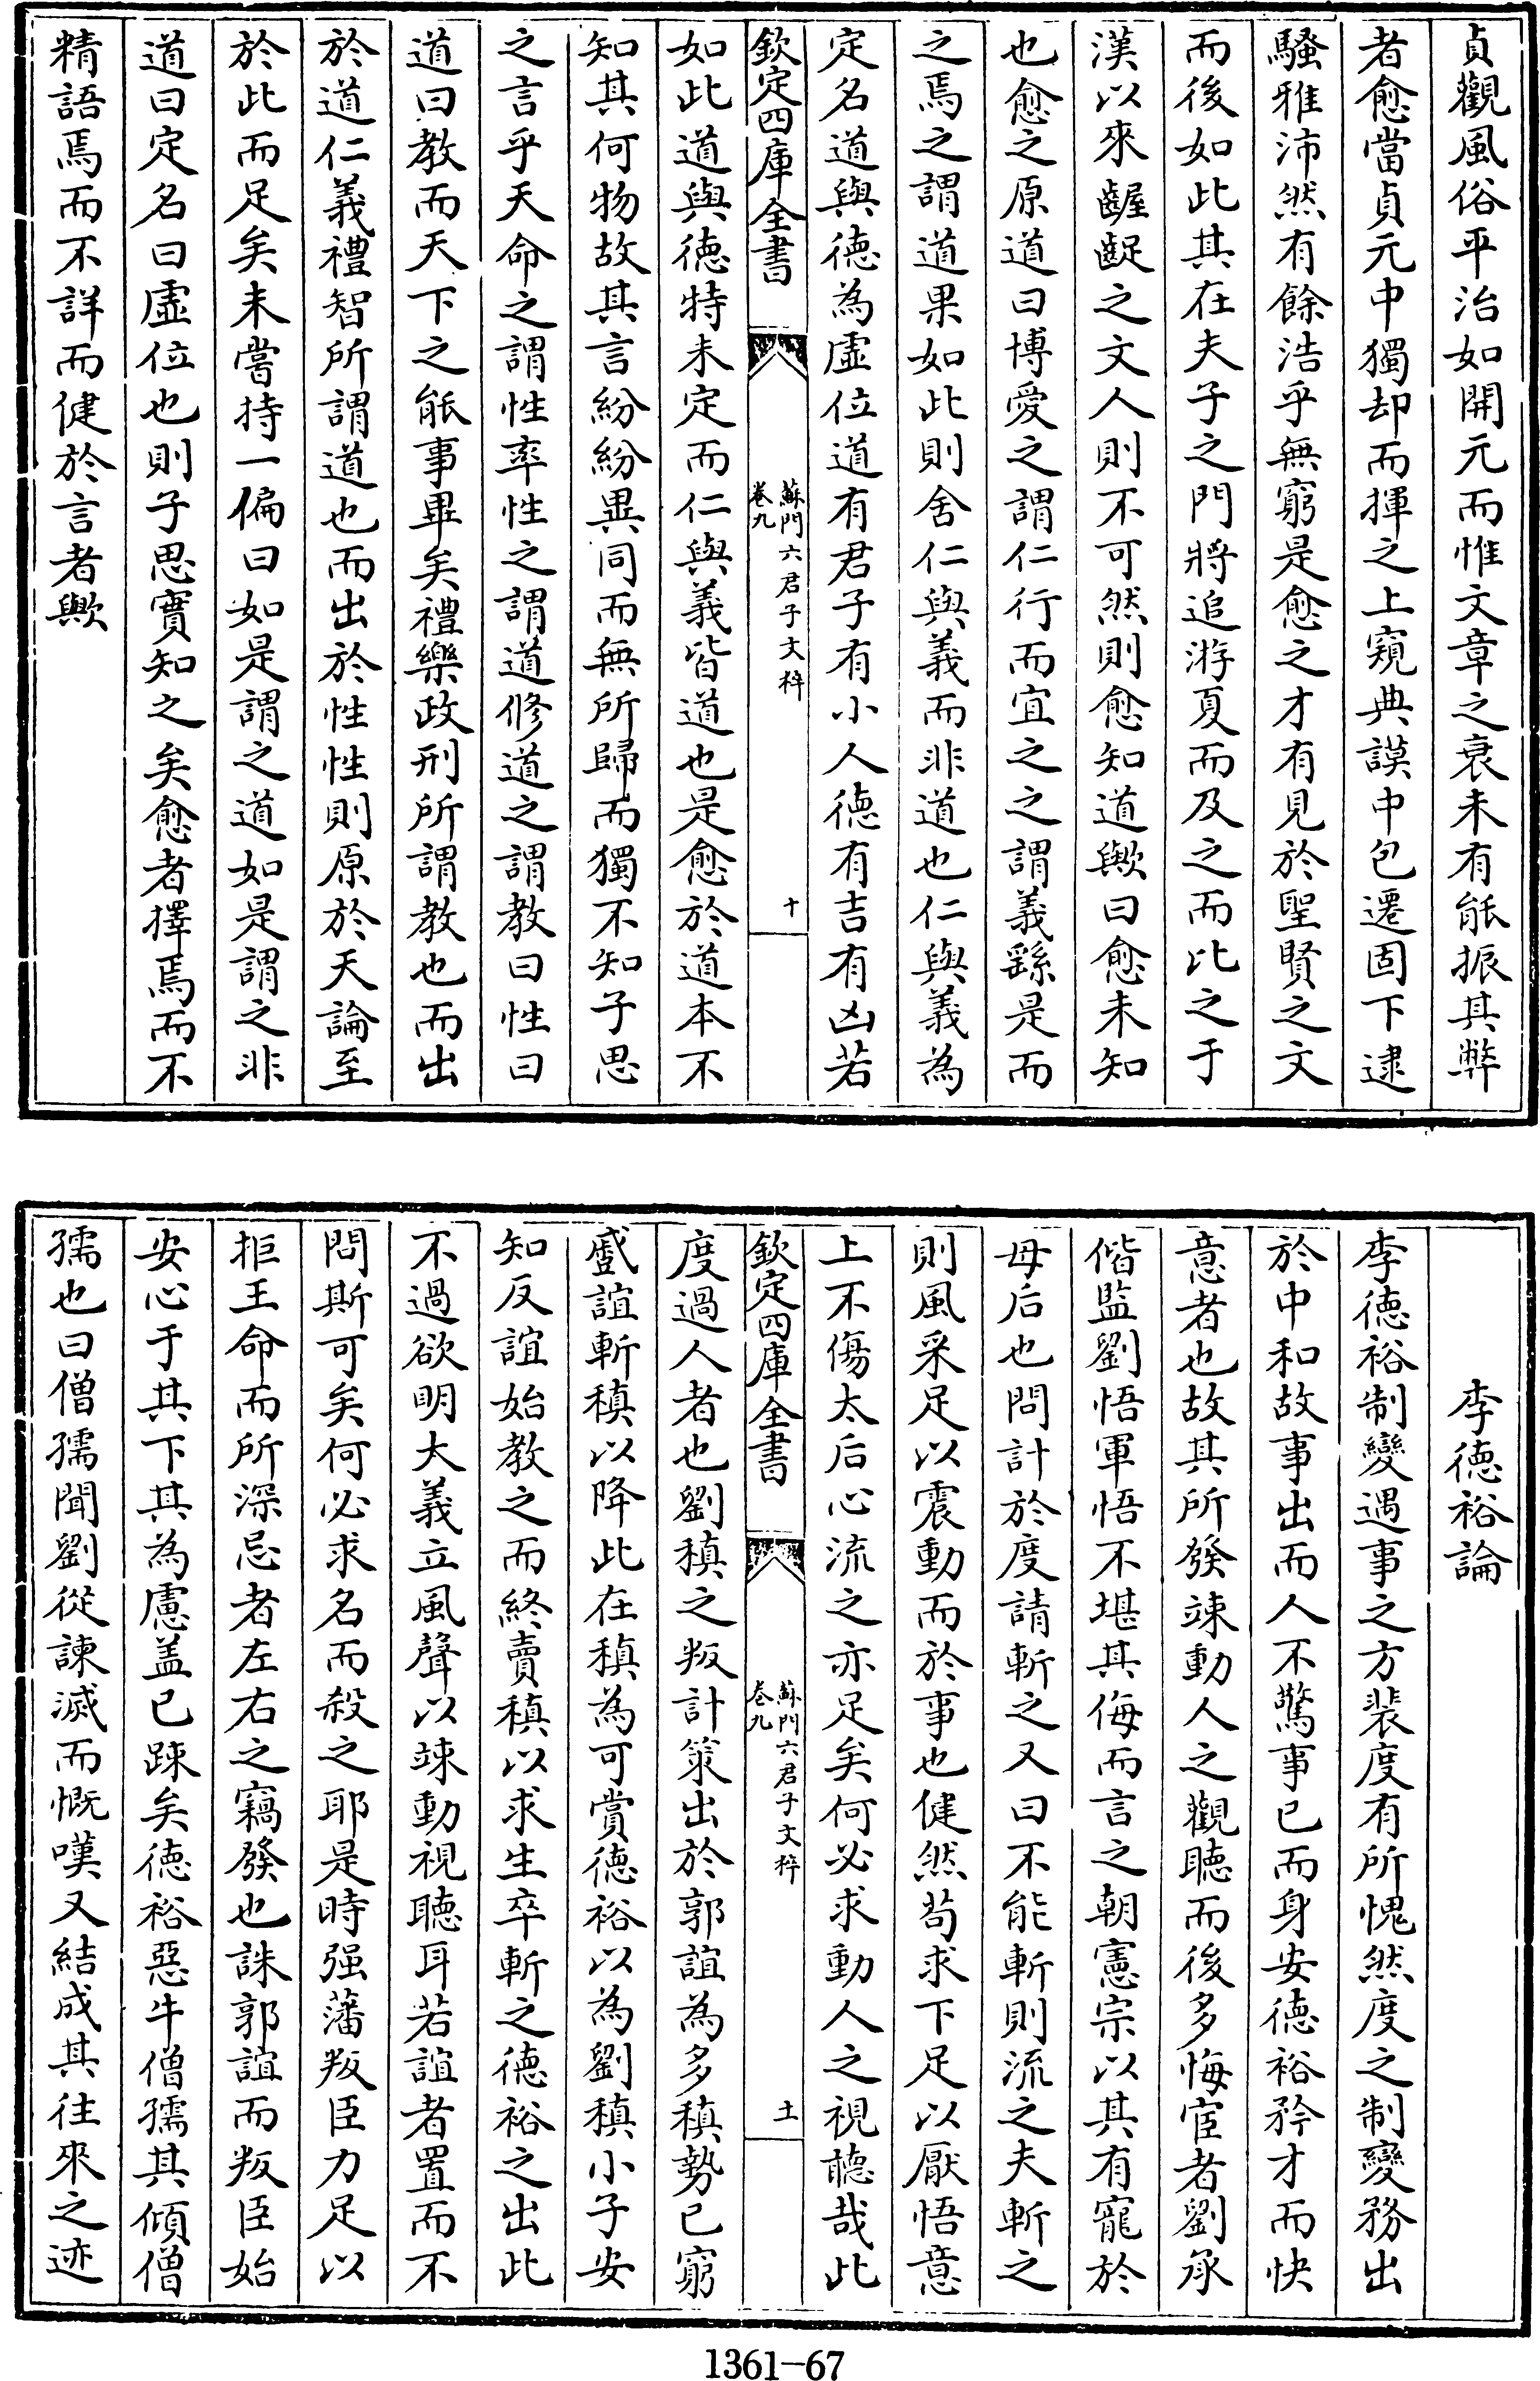 貞觀風俗平治如開元而惟文章之衰未有能振其弊
者愈當貞元中獨却而揮之上窺典謨中包遷固下逮
騷雅沛然有餘浩乎無窮是愈之才有見於聖賢之文
而後如此其在夫子之門將追游夏而及之而比之于
漢以來齷齪之文人則不可然則愈知道歟曰愈未知
也愈之原道曰博愛之謂仁行而宜之之謂義繇是而
之焉之謂道果如此則舍仁與義而非道也仁與義為
定名道與德為虛位道有君子有小人德有吉有凶若
欽定四庫全書
蘇門六君子文粹
卷九
十
如此道與德特未定而仁與義皆道也是愈於道本不
知其何物故其言紛紛異同而無所歸而獨不知子思
之言乎天命之謂性率性之謂道修道之謂教曰性曰
道曰教而天下之能事畢矣禮樂政刑所謂教也而出
於道仁義禮智所謂道也而出於性性則原於天論至
於此而足矣未嘗持一偏曰如是謂之道如是謂之非
道曰定名曰虛位也則子思實知之矣愈者擇焉而不
精語焉而不詳而健於言者歟
李德裕論
李德裕制變遇事之方裴度有所愧然度之制變務出
於中和故事出而人不驚事已而身安德裕矜才而快
意者也故其所發竦動人之觀聽而後多悔宦者劉承
偕監劉悟軍悟不堪其侮而言之朝憲宗以其有寵於
母后也問計於度請斬之又曰不能斬則流之夫斬之
則風采足以震動而於事也健然苟求下足以厭悟意
上不傷太后心流之亦足矣何必求動人之視聽哉此
欽定四庫全書
蘇門六君子文粹
卷九
十一
度過人者也劉稹之叛計策出於郭誼為多稹勢已窮
蹙誼斬稹以降此在稹為可賞德裕以為劉稹小子安
知反誼始教之而終賣稹以求生卒斬之德裕之出此
不過欲明大義立風聲以竦動視聽耳若誼者置而不
問斯可矣何必求名而殺之耶是時强藩叛臣力足以
拒王命而所深忌者左右之竊發也誅郭誼而叛臣始
安心于其下其為慮盖已踈矣德裕惡牛僧孺其傾僧
孺也曰僧孺聞劉從諫滅而慨嘆又結成其往來之迹
1361-67